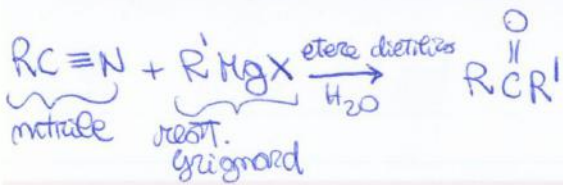 RC≡N + R'MgX etere dietilico H₂O RCR' O
nitrile reatt.
grignard